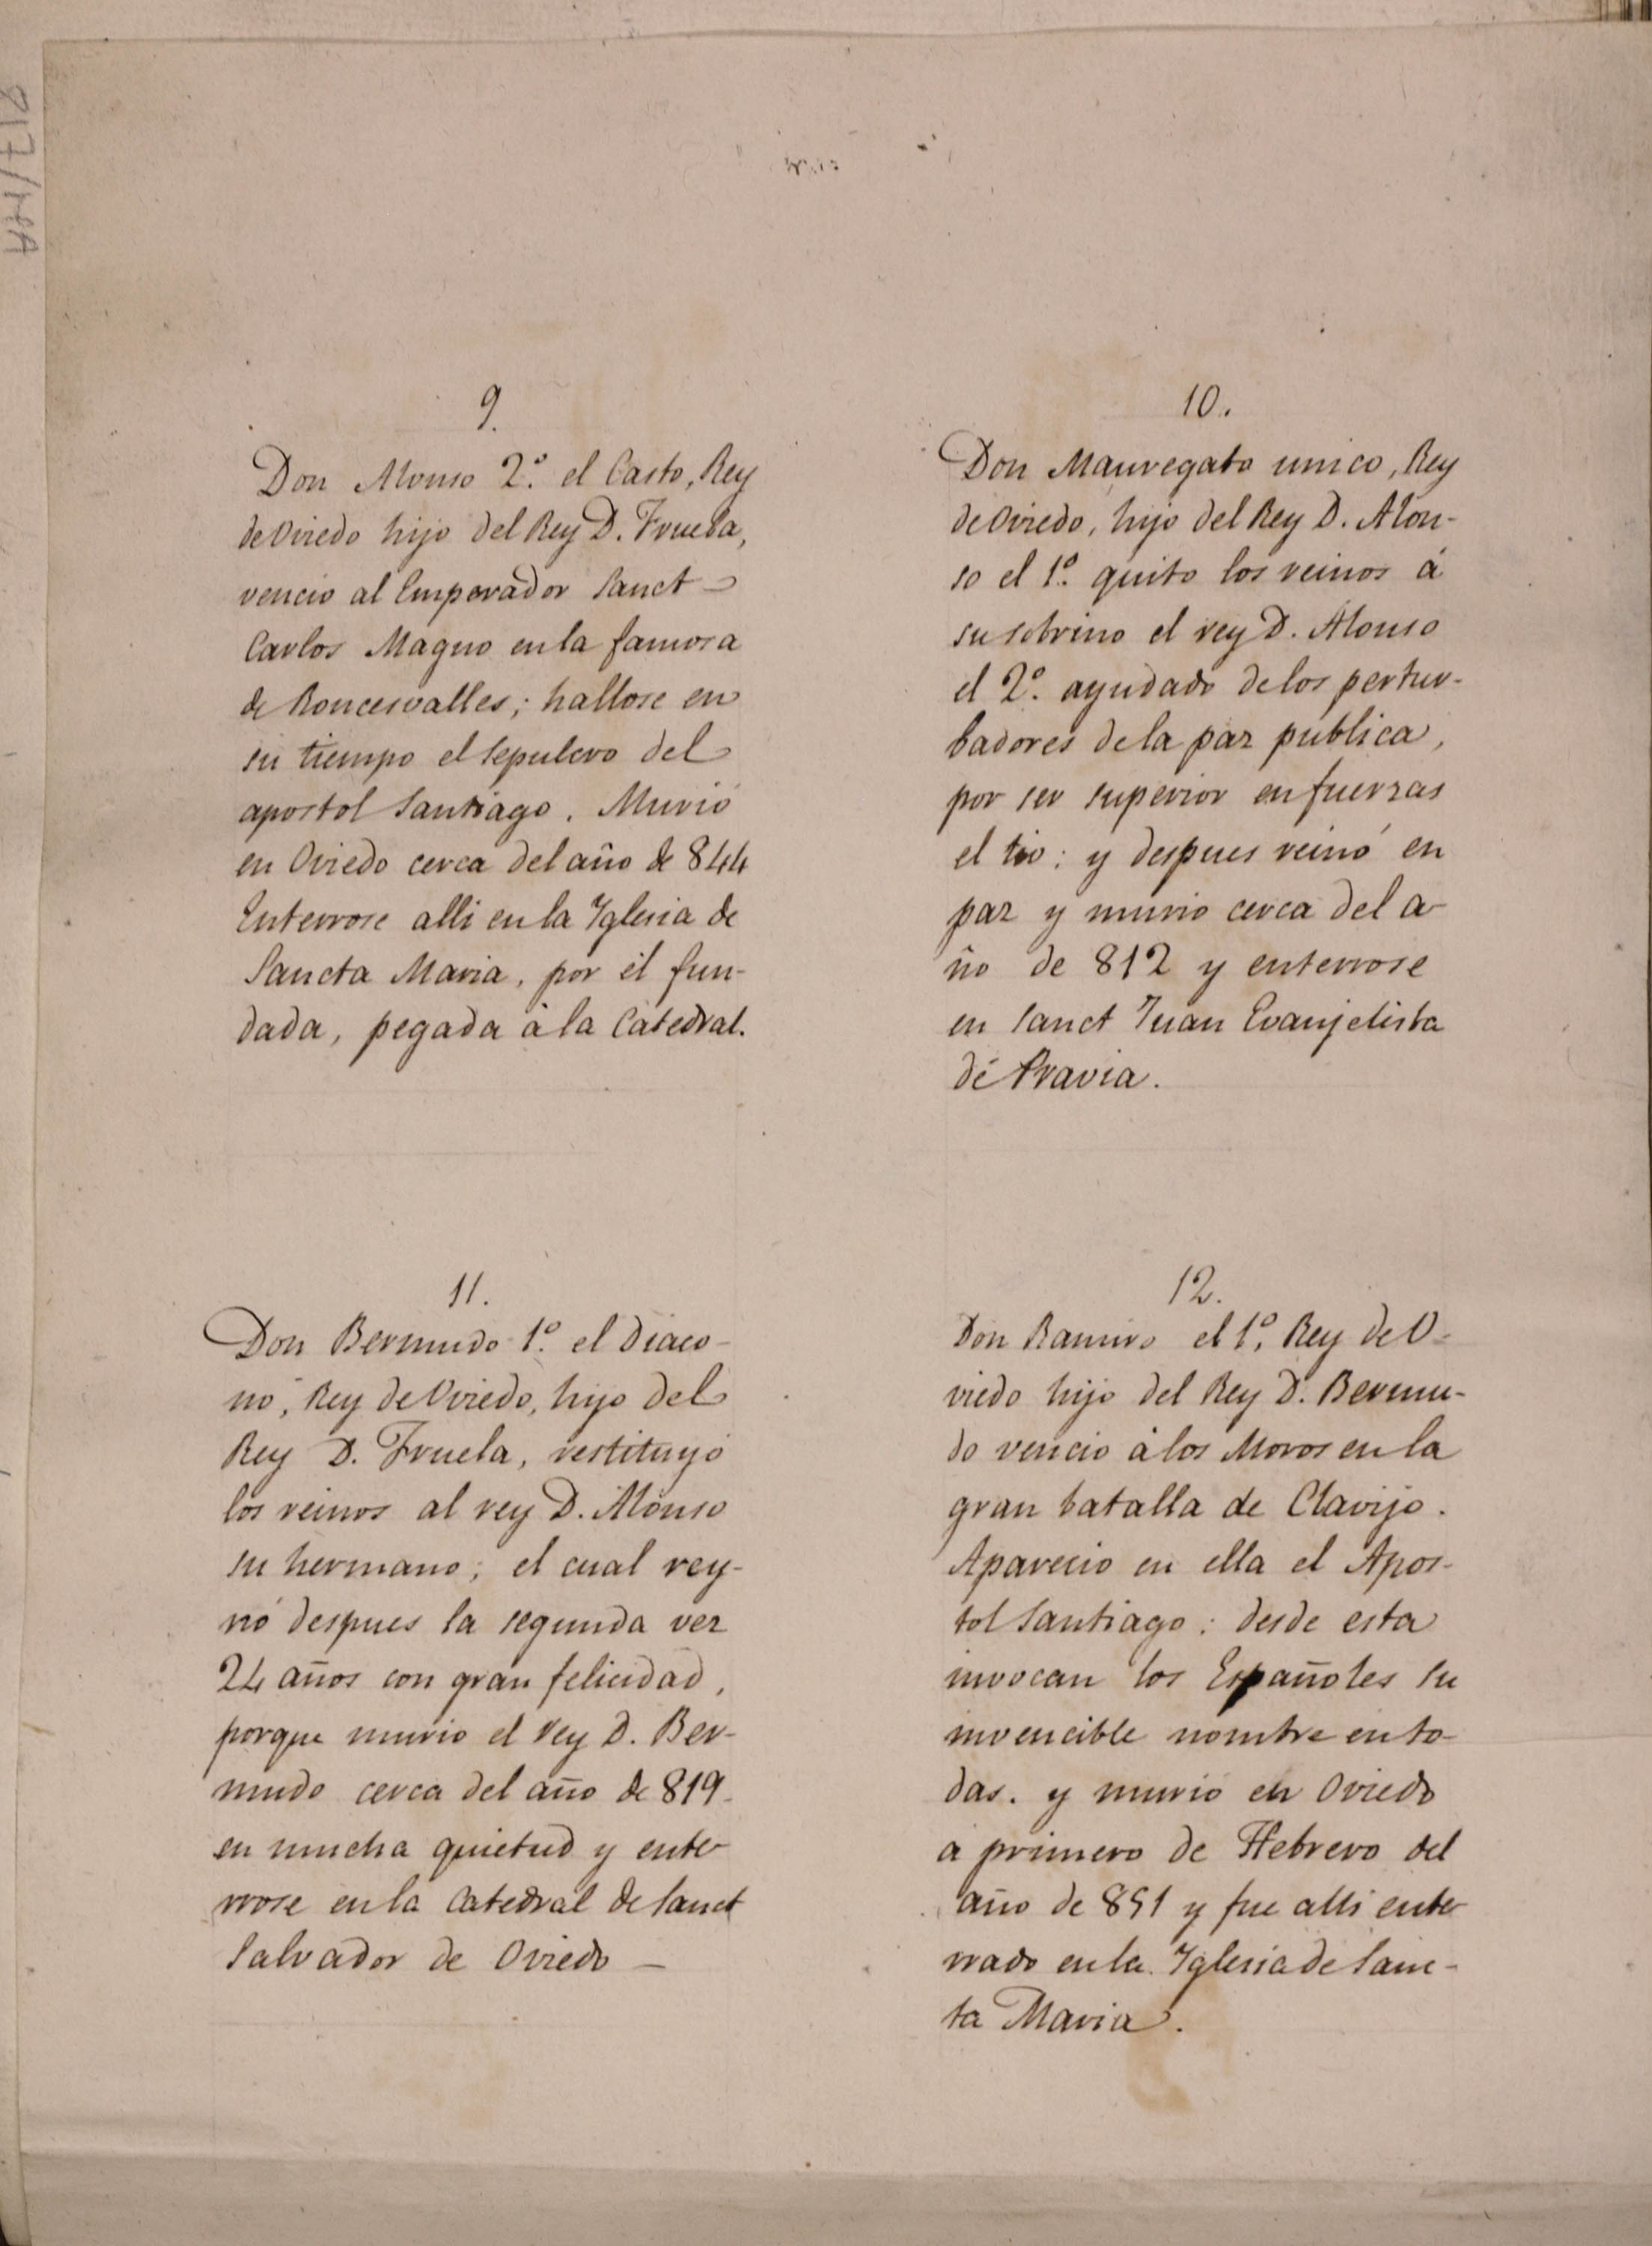 9.
Don Alonso 2.º el Casto, Rey
de Oviedo hijo del Rey D. Fruela,
vencio al Emperador Sanct
Carlos Magno en la famosa
de Roncesvalles; hallose en
su tiempo el sepulcro del
apostol Santiago. Murió
en Oviedo cerca del año de 844
Enterrose alli en la Yglesia de
Sancta Maria, por él fun-
dada, pegada à la Catedral.
10.
Don Mauregato unico, Rey
de Oviedo, hijo del Rey D. Alon-
so el 1.º quito los reinos á
su sobrino el rey D. Alonso
el 2.º ayudado de los pertur-
badores de la paz publica,
por ser superior en fuerzas
el tio: y despues reinó en
paz y murio cerca del a-
ño de 812 y enterrose
en Sanct Juan Evanjelista
de Pravia.
11.
Don Bermudo 1.º el Diaco-
no, Rey de Oviedo, hijo del
Rey D. Fruela, restituyó
los reinos al rey D. Alonso
su hermano; el cual rey-
nó despues la segunda vez
24 años con gran felicidad,
porque murio el Rey D. Ber-
mudo cerca del año de 819
en mucha quietud y ente-
rrose en la Catedral de Sanct
Salvador de Oviedo —
12.
Don Ramiro el 1.º, Rey de O-
viedo hijo del Rey D. Bermu-
do vencio à los Moros en la
gran batalla de Clavijo.
Aparecio en ella el Apos-
tol Santiago: desde esta
invocan los Españoles su
invencible nombre en to-
das. y murió en Oviedo
a primero de Hebrero del
año de 851 y fue alli ente-
rrado en la Yglesia de Sanc-
ta Maria.